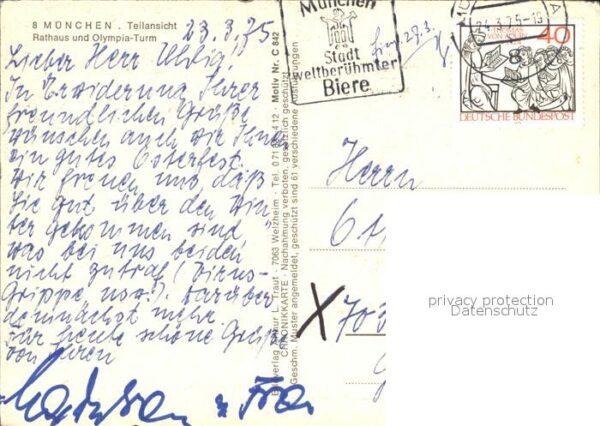 8 MÜNCHEN . Teilansicht
Rathaus und Olympia-Turm
23.3.75
Lieber Herr Uhlig!
In Erwiderung Ihrer
freundlichen Grüße
wünschen auch wir Ihnen
ein gutes Osterfest.
Wir freuen uns daß
Sie gut über den Win-
ter gekommen sind
was bei uns beiden
nicht zutraf (Virus-
Grippe usw.). Darüber
demnächst mehr
Für heute schöne Grüße
von Ihren
u Frau
Verlag Arthur L. Traut · 7063 Welzheim · Tel. 071 82/4 12 · Motiv Nr. C 842
CHRONIKKARTE · Nachahmung verboten, gesetzlich geschützt
Geschm. Muster angemeldet, geschützt sind 61 verschiedene Ausführungen
München
Stadt
weltberühmter
Biere
29.3.
24.3.75-1
40
DEUTSCHE BUNDESPOST
Herrn
X 703
privacy protection
Datenschutz